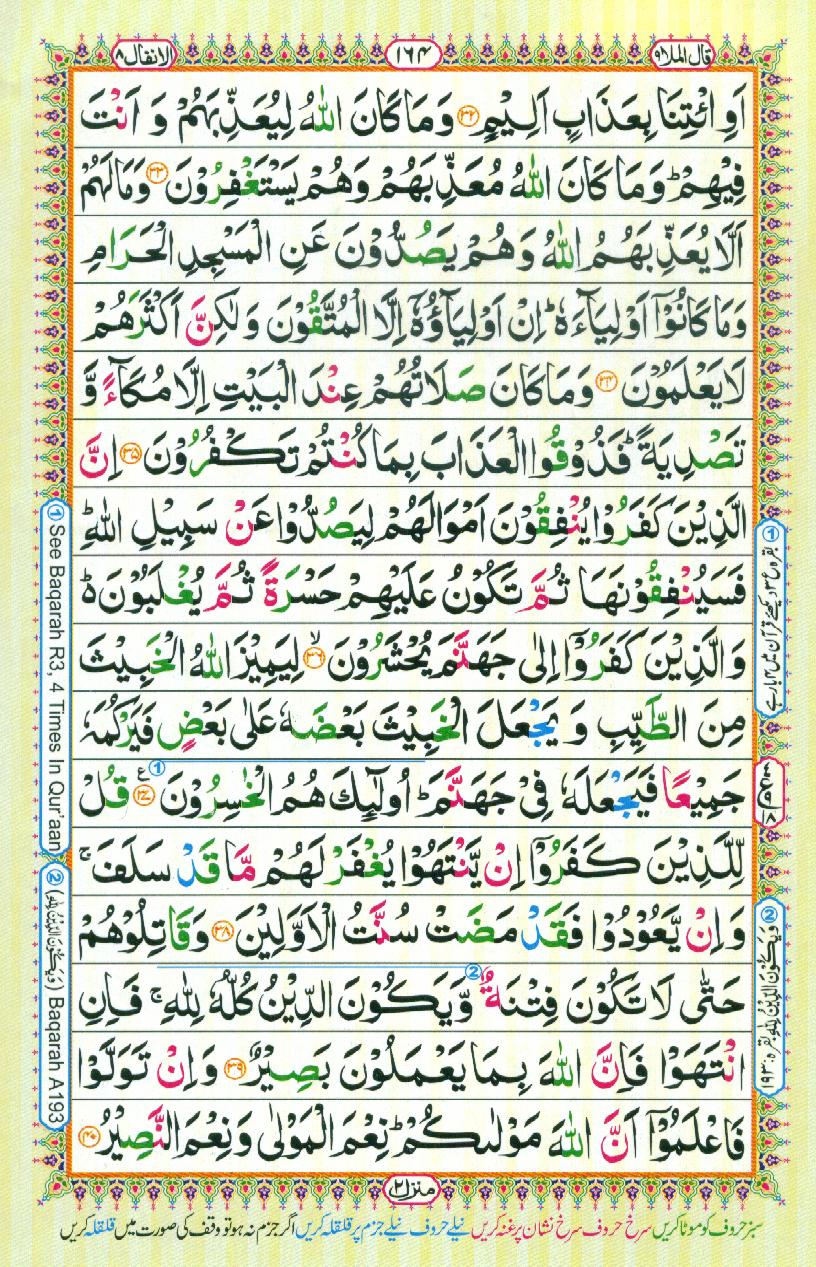 قال الملا ٩
١٦٤
الانفال ٨
اَوِ ائْتِنَا بِعَذَابٍ اَلِيْمٍ ﴿٣٢﴾ وَمَا كَانَ اللّٰهُ لِيُعَذِّبَهُمْ وَ اَنْتَ
فِيْهِمْ ؕ وَمَا كَانَ اللّٰهُ مُعَذِّبَهُمْ وَهُمْ يَسْتَغْفِرُوْنَ ﴿٣٣﴾ وَمَا لَهُمْ
اَلَّا يُعَذِّبَهُمُ اللّٰهُ وَهُمْ يَصُدُّوْنَ عَنِ الْمَسْجِدِ الْحَرَامِ
وَمَا كَانُوْۤا اَوْلِيَآءَهٗ ؕ اِنْ اَوْلِيَآؤُهٗۤ اِلَّا الْمُتَّقُوْنَ وَلٰكِنَّ اَكْثَرَهُمْ
لَا يَعْلَمُوْنَ ﴿٣٤﴾ وَمَا كَانَ صَلَاتُهُمْ عِنْدَ الْبَيْتِ اِلَّا مُكَآءً وَّ
تَصْدِيَةً ؕ فَذُوْقُوا الْعَذَابَ بِمَا كُنْتُمْ تَكْفُرُوْنَ ﴿٣٥﴾ اِنَّ
الَّذِيْنَ كَفَرُوْا يُنْفِقُوْنَ اَمْوَالَهُمْ لِيَصُدُّوْا عَنْ سَبِيْلِ اللّٰهِ ؕ
فَسَيُنْفِقُوْنَهَا ثُمَّ تَكُوْنُ عَلَيْهِمْ حَسْرَةً ثُمَّ يُغْلَبُوْنَ ؕ
وَالَّذِيْنَ كَفَرُوْۤا اِلٰى جَهَنَّمَ يُحْشَرُوْنَ ﴿٣٦﴾ۙ لِيَمِيْزَ اللّٰهُ الْخَبِيْثَ
مِنَ الطَّيِّبِ وَ يَجْعَلَ الْخَبِيْثَ بَعْضَهٗ عَلٰى بَعْضٍ فَيَرْكُمَهٗ
جَمِيْعًا فَيَجْعَلَهٗ فِيْ جَهَنَّمَ ؕ اُولٰٓئِكَ هُمُ الْخٰسِرُوْنَ ﴿٣٧﴾ ع ① قُلْ
لِّلَّذِيْنَ كَفَرُوْۤا اِنْ يَّنْتَهُوْا يُغْفَرْ لَهُمْ مَّا قَدْ سَلَفَ ۚ
وَاِنْ يَّعُوْدُوْا فَقَدْ مَضَتْ سُنَّتُ الْاَوَّلِيْنَ ﴿٣٨﴾ وَقَاتِلُوْهُمْ
حَتّٰى لَا تَكُوْنَ فِتْنَةٌ ② وَّيَكُوْنَ الدِّيْنُ كُلُّهٗ لِلّٰهِ ۚ فَاِنِ
انْتَهَوْا فَاِنَّ اللّٰهَ بِمَا يَعْمَلُوْنَ بَصِيْرٌ ﴿٣٩﴾ وَاِنْ تَوَلَّوْا
فَاعْلَمُوْۤا اَنَّ اللّٰهَ مَوْلٰىكُمْ ؕ نِعْمَ الْمَوْلٰى وَنِعْمَ النَّصِيْرُ ﴿٤٠﴾
② وَيَكُوْنَ الدِّيْنُ لِلّٰهِ بقرہ: ۱۹۳
① See Baqarah R3, 4 Times In Qur'aan
② (وَيَكُوْنَ الدِّيْنُ لِلّٰهِ) Baqarah A193
منزل ٢
سبز حروف کو موٹا کریں سرخ حروف سرخ نشان پر غنہ کریں نیلے حروف نیلے جزم پر قلقلہ کریں اگر جزم نہ ہو تو وقف کی صورت میں قلقلہ کریں